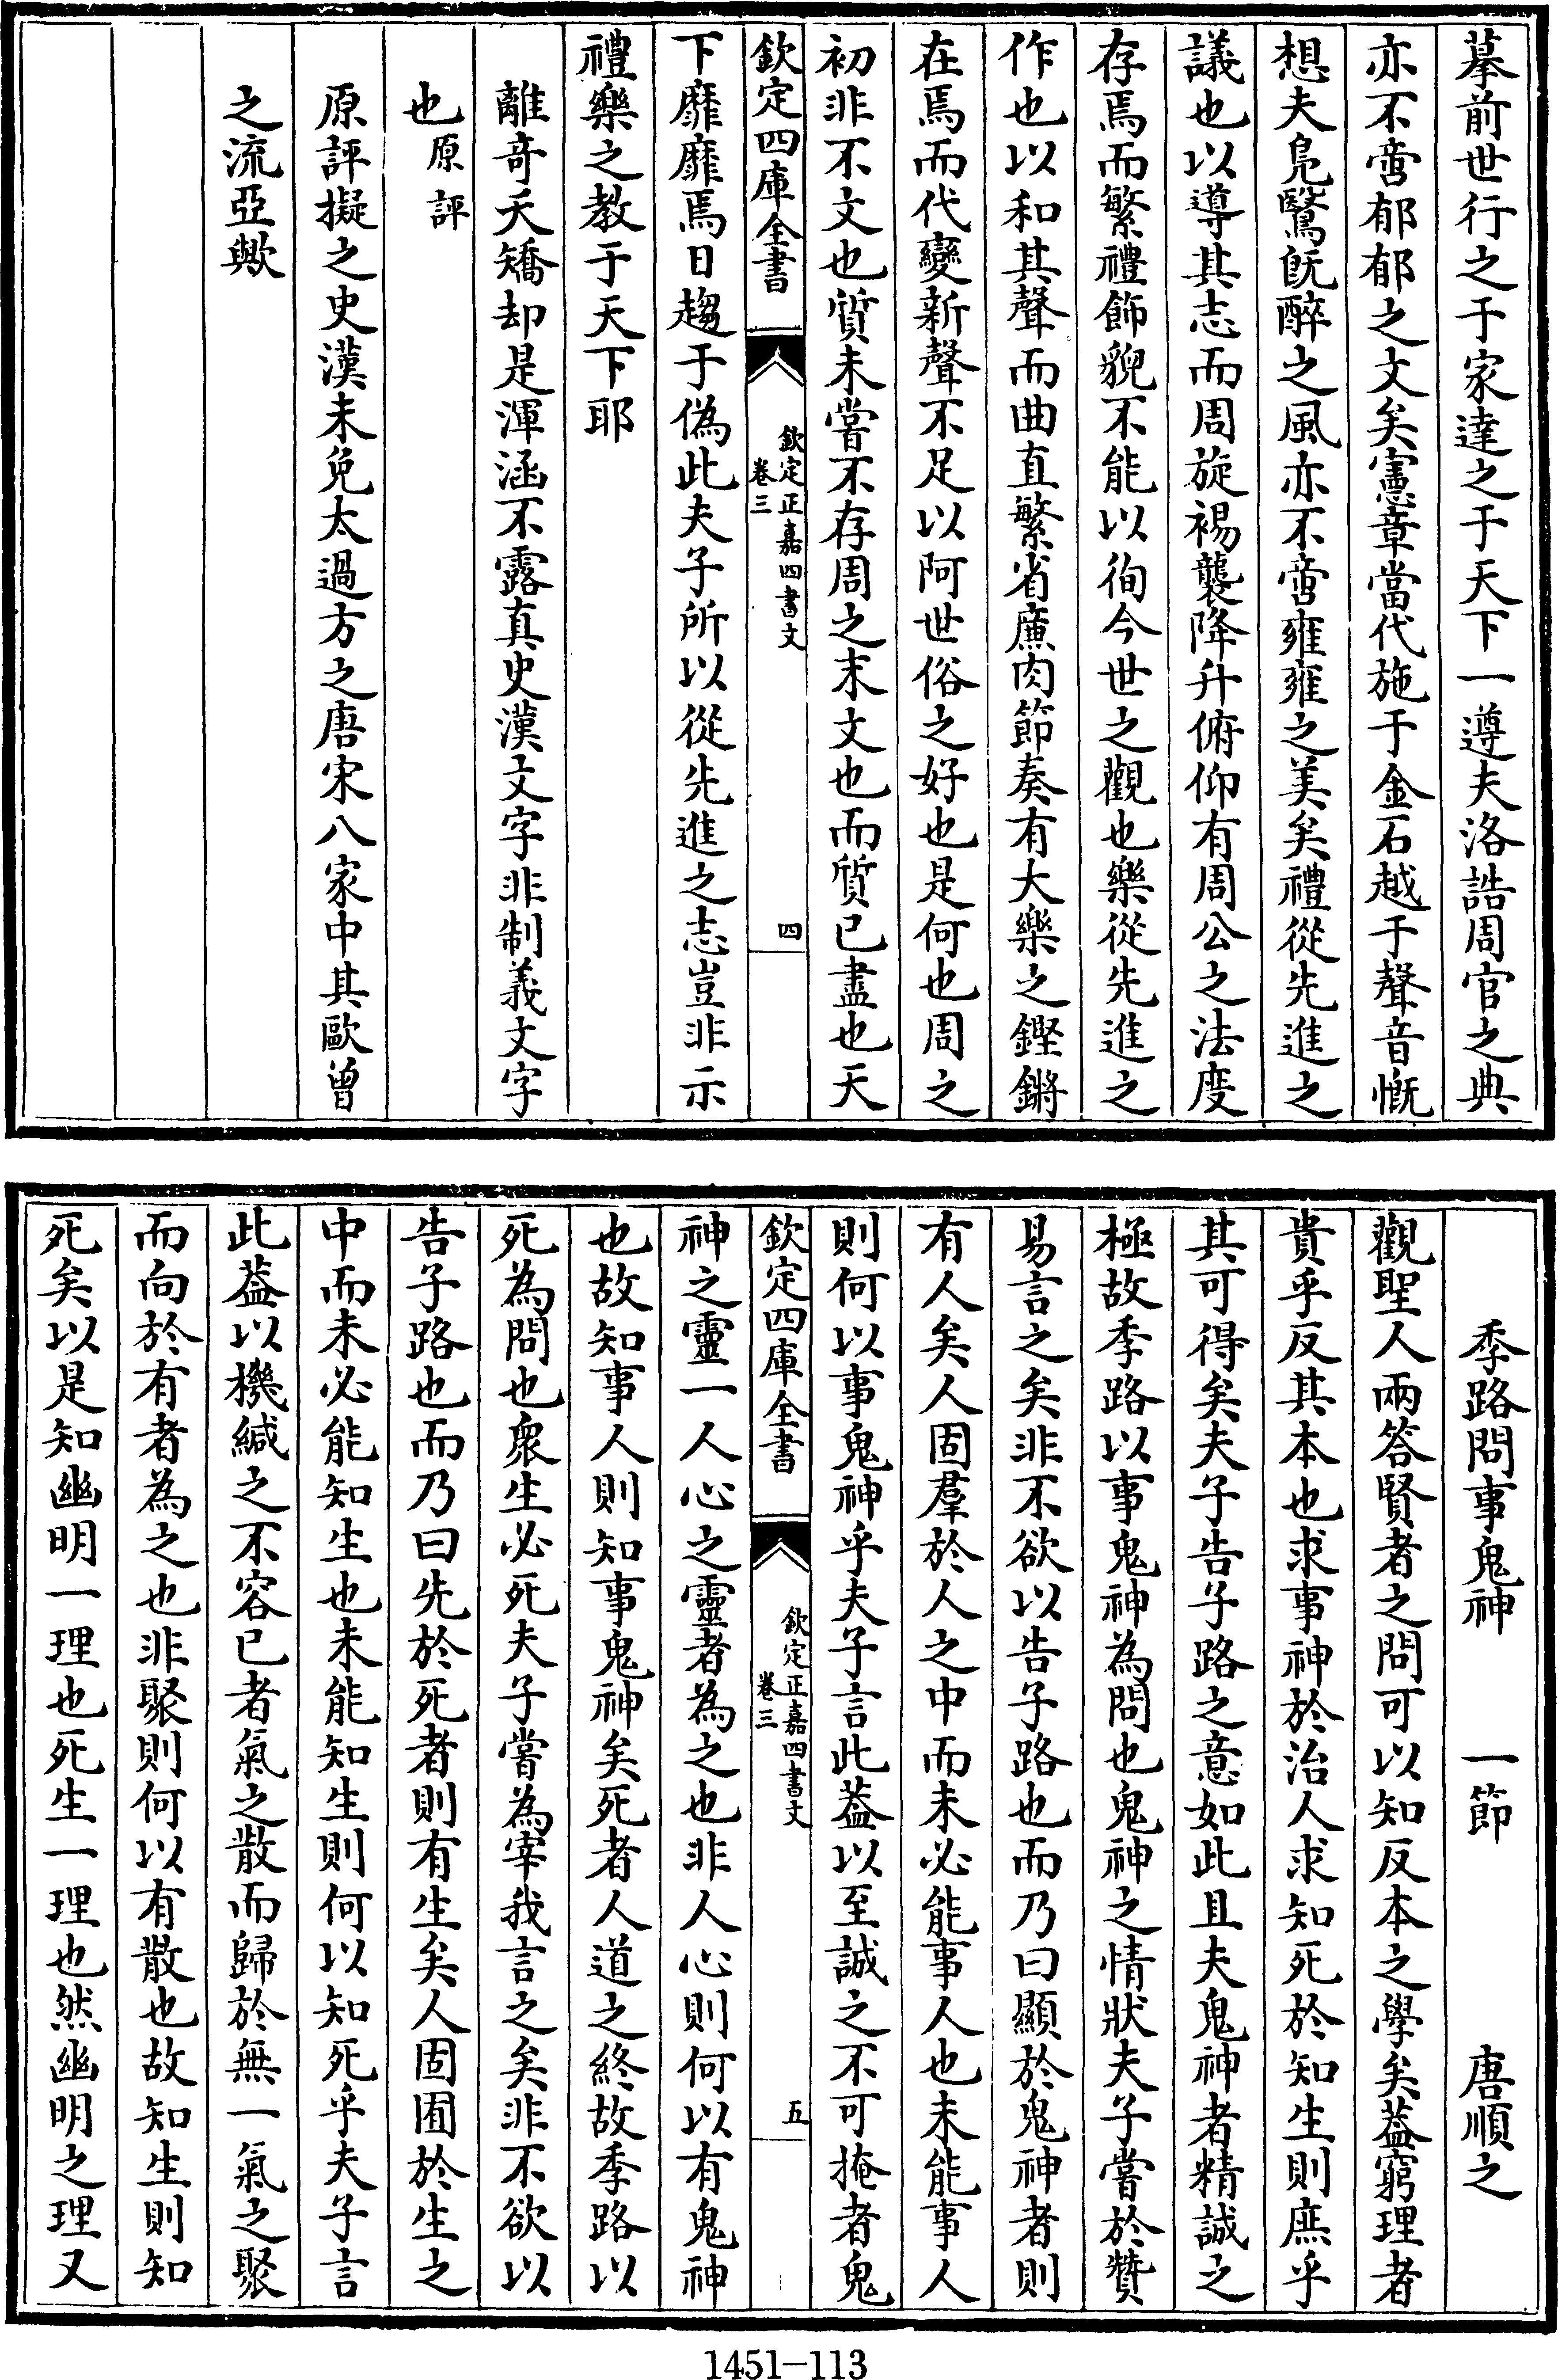 摹前世行之于家達之于天下一遵夫洛誥周官之典
亦不啻郁郁之文矣憲章當代施于金石越于聲音慨
想夫鳧鷖旣醉之風亦不啻雍雍之美矣禮從先進之
議也以導其志而周旋裼襲降升俯仰有周公之法度
存焉而繁禮飾貌不能以徇今世之觀也樂從先進之
作也以和其聲而曲直繁省廉肉節奏有大樂之鏗鏘
在焉而代變新聲不足以阿世俗之好也是何也周之
初非不文也質未嘗不存周之末文也而質已盡也天
欽定四庫全書
欽定正嘉四書文
卷三
四
下靡靡焉日趨于偽此夫子所以從先進之志豈非示
禮樂之教于天下耶
離奇夭矯却是渾涵不露真史漢文字非制義文字
也原評
原評擬之史漢未免太過方之唐宋八家中其歐曾
之流亞歟
季路問事鬼神 一節 唐順之
觀聖人兩答賢者之問可以知反本之學矣葢窮理者
貴乎反其本也求事神於治人求知死於知生則庶乎
其可得矣夫子告子路之意如此且夫鬼神者精誠之
極故季路以事鬼神為問也鬼神之情狀夫子嘗於贊
易言之矣非不欲以告子路也而乃曰顯於鬼神者則
有人矣人固羣於人之中而未必能事人也未能事人
則何以事鬼神乎夫子言此葢以至誠之不可掩者鬼
欽定四庫全書
欽定正嘉四書文
卷三
五
神之靈一人心之靈者為之也非人心則何以有鬼神
也故知事人則知事鬼神矣死者人道之終故季路以
死為問也衆生必死夫子嘗為宰我言之矣非不欲以
告子路也而乃曰先於死者則有生矣人固囿於生之
中而未必能知生也未能知生則何以知死乎夫子言
此葢以機緘之不容已者氣之散而歸於無一氣之聚
而向於有者為之也非聚則何以有散也故知生則知
死矣以是知幽明一理也死生一理也然幽明之理又
1451-113